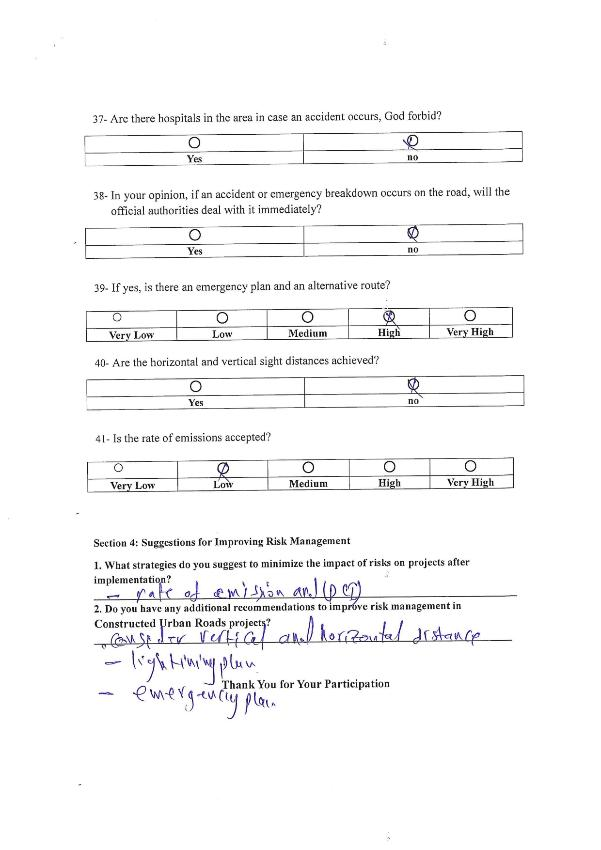 37- Are there hospitals in the area in case an accident occurs, God forbid?
Yes no
38- In your opinion, if an accident or emergency breakdown occurs on the road, will the
official authorities deal with it immediately?
Yes no
39- If yes, is there an emergency plan and an alternative route?
Very Low Low Medium High Very High
40- Are the horizontal and vertical sight distances achieved?
Yes no
41- Is the rate of emissions accepted?
Very Low Low Medium High Very High
Section 4: Suggestions for Improving Risk Management
1. What strategies do you suggest to minimize the impact of risks on projects after
implementation?
- rate of emission and
2. Do you have any additional recommendations to improve risk management in
Constructed Urban Roads projects?
vertical and horizontal distance
- lightining plan
Thank You for Your Participation
- emergency plan